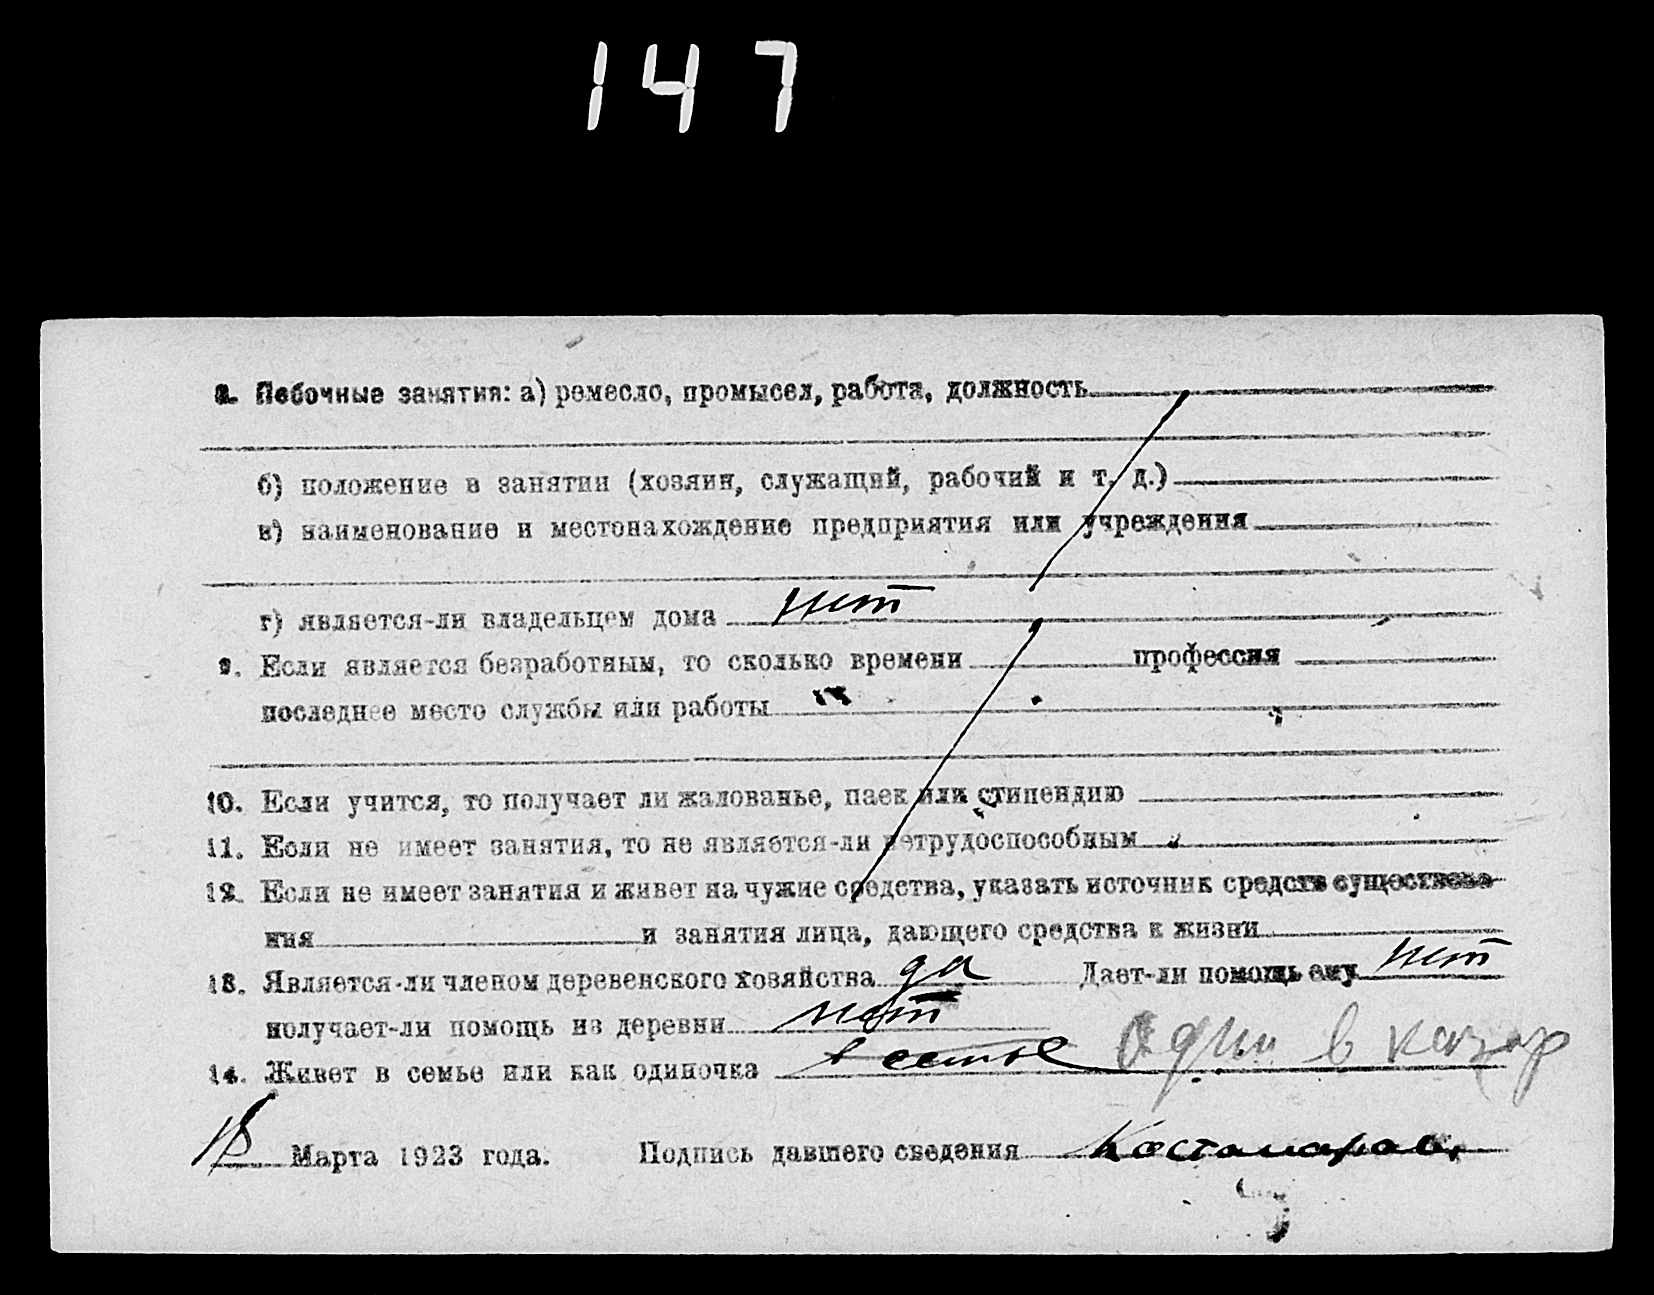 147
8. Побочные занятия: а) ремесло, промысел, работа, должность
б) положение в занятии (хозяин, служащий, рабочий и т. д.)
в) наименование и местонахождение предприятия или учреждения
г) является-ли владельцем дома нет
9. Если является безработным, то сколько времени профессия
последнее место службы или работы
10. Если учится, то получает ли жалованье, паек или стипендию
11. Если не имеет занятия, то не является-ли нетрудоспособным
12. Если не имеет занятия и живет на чужие средства, указать источник средств существова-
ния и занятия лица, дающего средства к жизни
13. Является-ли членом деревенского хозяйства да Дает-ли помощь ему нет
получает-ли помощь из деревни нет
14. Живет в семье или как одиночка в семье один в казар
18 Марта 1923 года. Подпись давшего сведения Костомаров